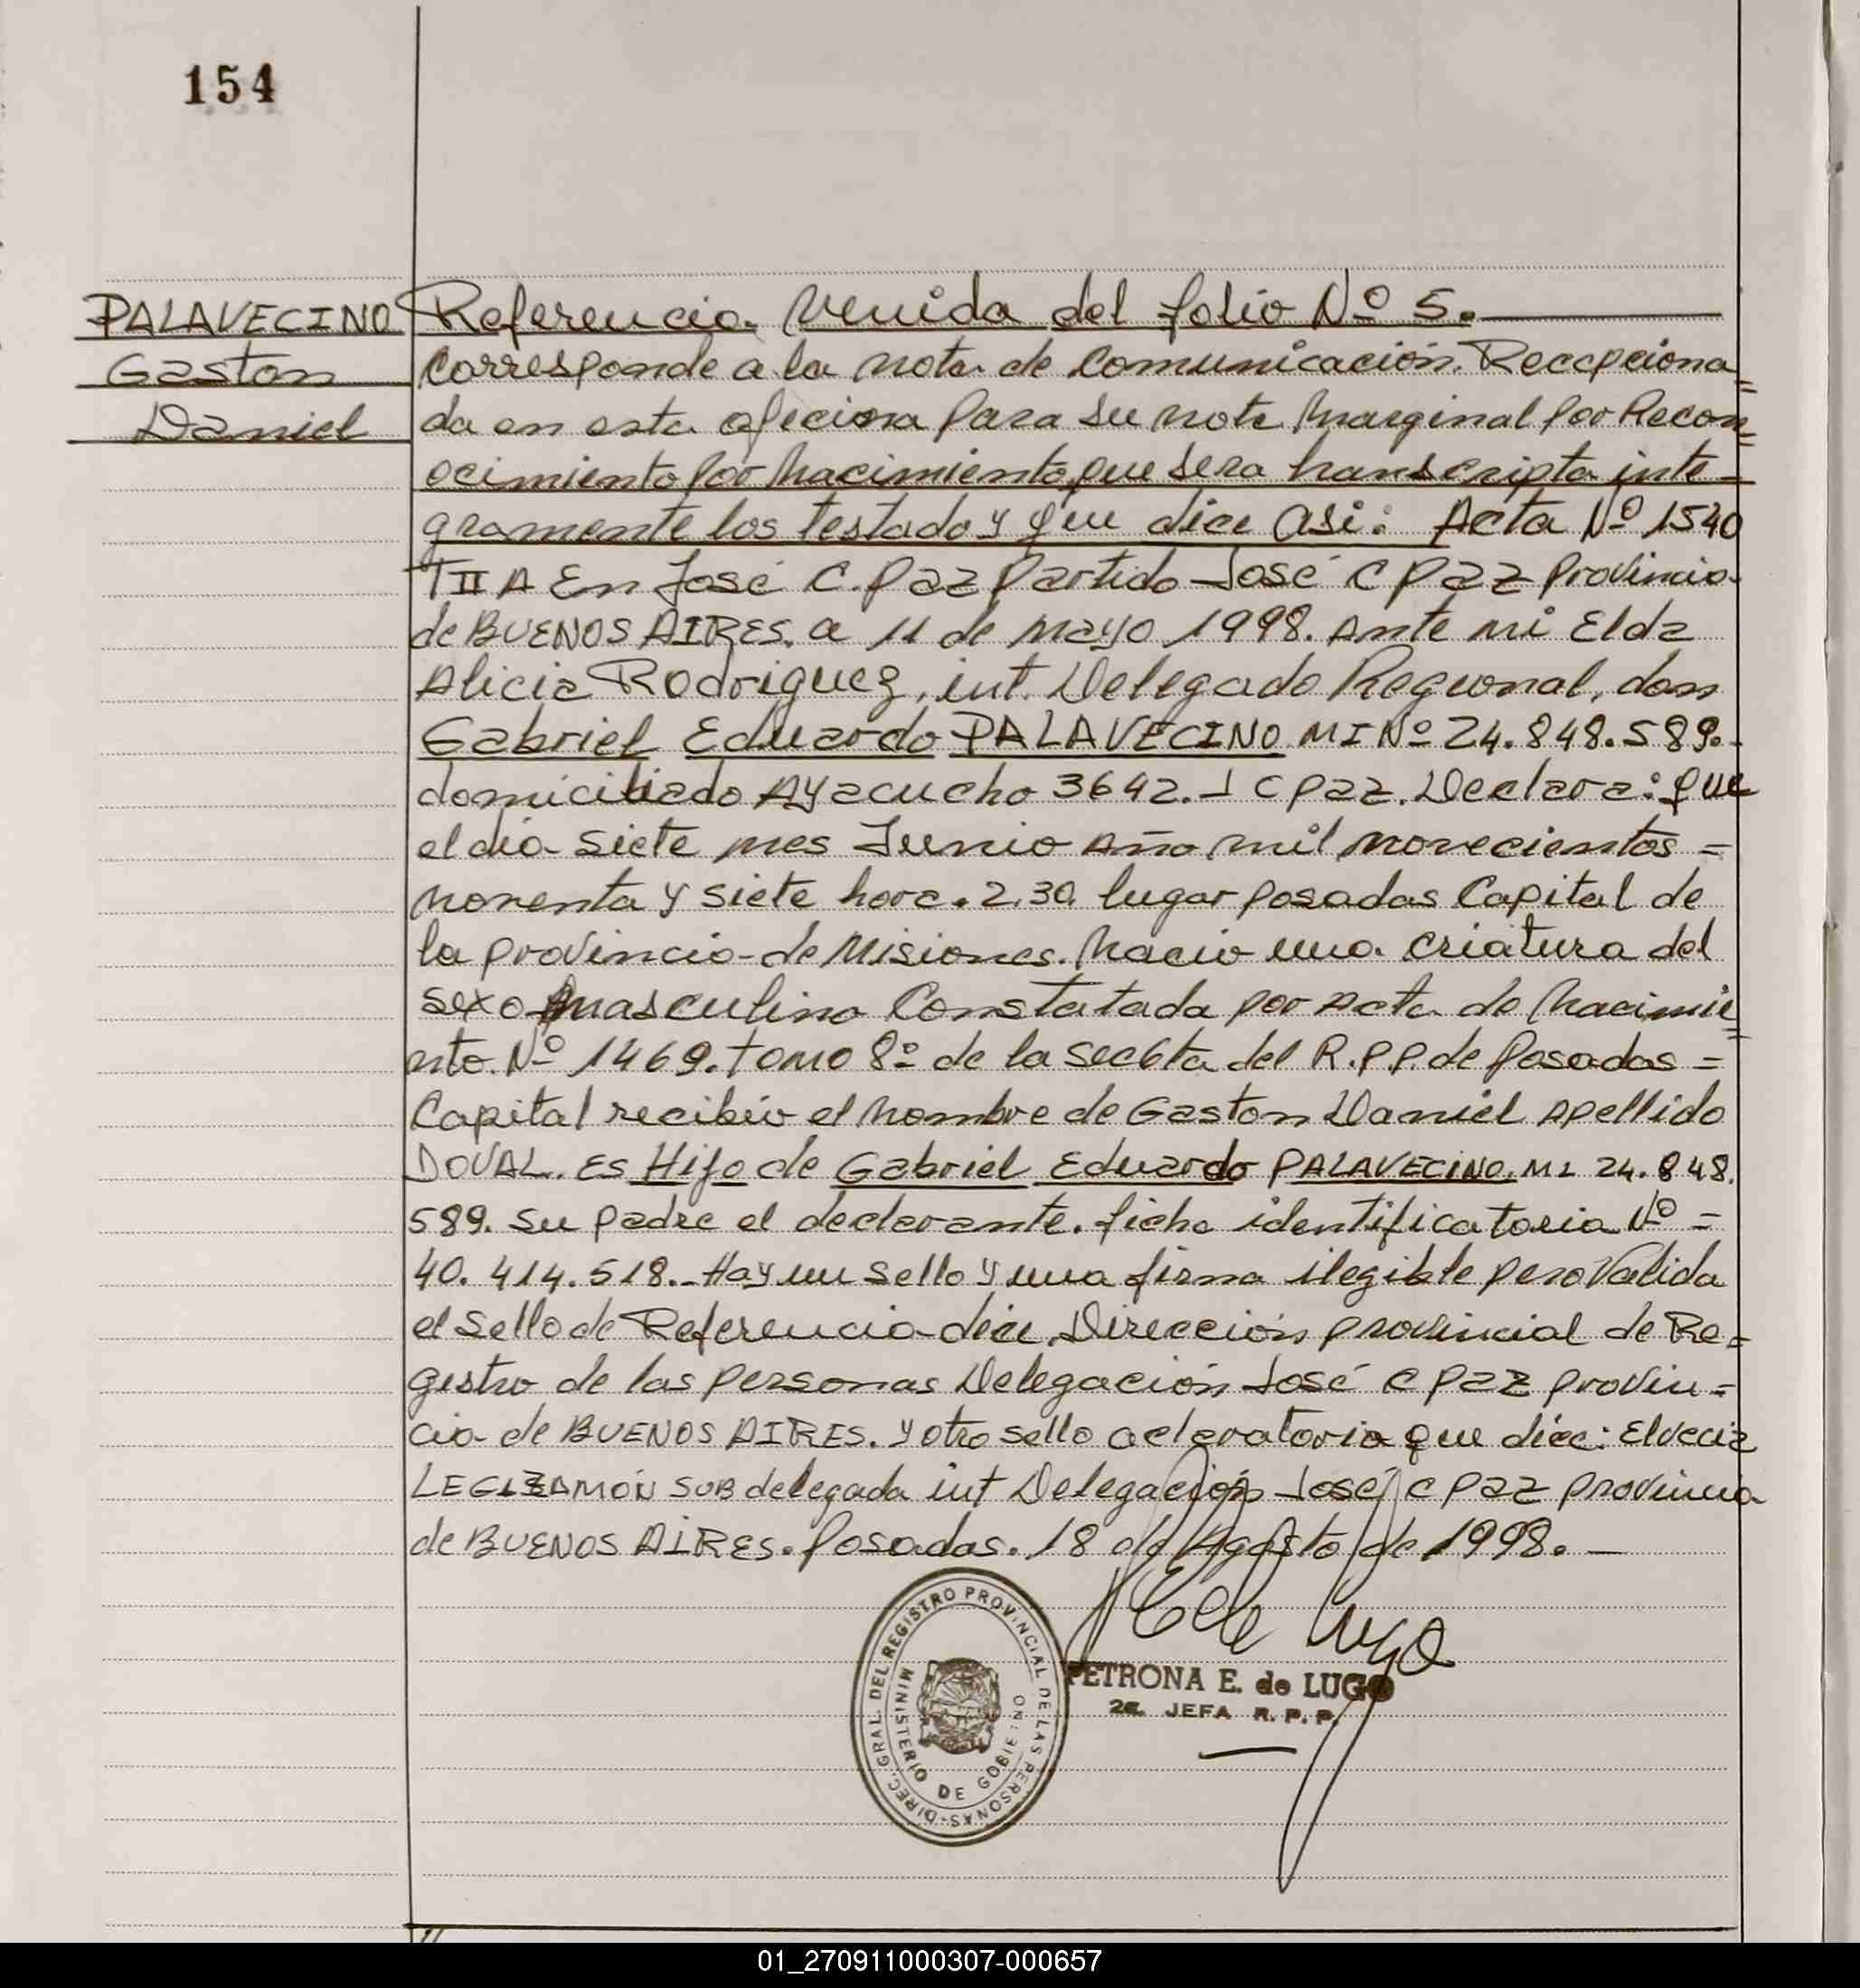 154
PALAVECINO
Gaston
Daniel
Referencia. Venida del folio Nº 5.
Corresponde a la nota de Comunicación. Recepciona=
da en esta oficiona para su nota marginal por Recon=
ocimiento por Nacimiento que sera transcripta inte=
gramente los testado y que dice asi: Acta Nº 1540
TII A En José C. Paz Partido José C Paz Provincia
de BUENOS AIRES. a 11 de mayo 1998. Ante mi Elda
Alicia Rodriguez, int. Delegado Regional, don
Gabriel Eduardo PALAVECINO MI Nº 24.848.589.
domiciliado Ayacucho 3642. J C Paz. Declara: que
el día siete mes Junio Año mil novecientos =
noventa y siete hora. 2.30. lugar Posadas Capital de
la provincia de Misiones. Nacio una criatura del
sexo masculino Constatada por Acta de Nacimie=
nto. Nº 1469. Tomo 8º de la sec 6ta del R.P.P. de Posadas =
Capital recibío el nombre de Gaston Daniel Apellido
DOVAL. Es Hijo de Gabriel Eduardo PALAVECINO. MI 24.848.
589. su padre el declarante. ficha identificatoria Nº =
40. 414. 518.- Hay un sello y una firma ilegible pero Valida
el Sello de Referencia dice Dirección provincial de Re=
gistro de las personas Delegación José C Paz provin=
cia de BUENOS AIRES. y otro sello aclaratoria que dice: Elvecia
LEGIZAMÓN SUB delegada int Delegación José C Paz provincia
de BUENOS AIRES. Posadas. 18 de Agosto de 1998.
Lugo
PETRONA E. de LUGO
2a. JEFA R. P. P.
DIREC. GRAL. DEL REGISTRO PROVINCIAL DE LAS PERSONAS
MINISTERIO DE GOBIERNO
01_270911000307-000657